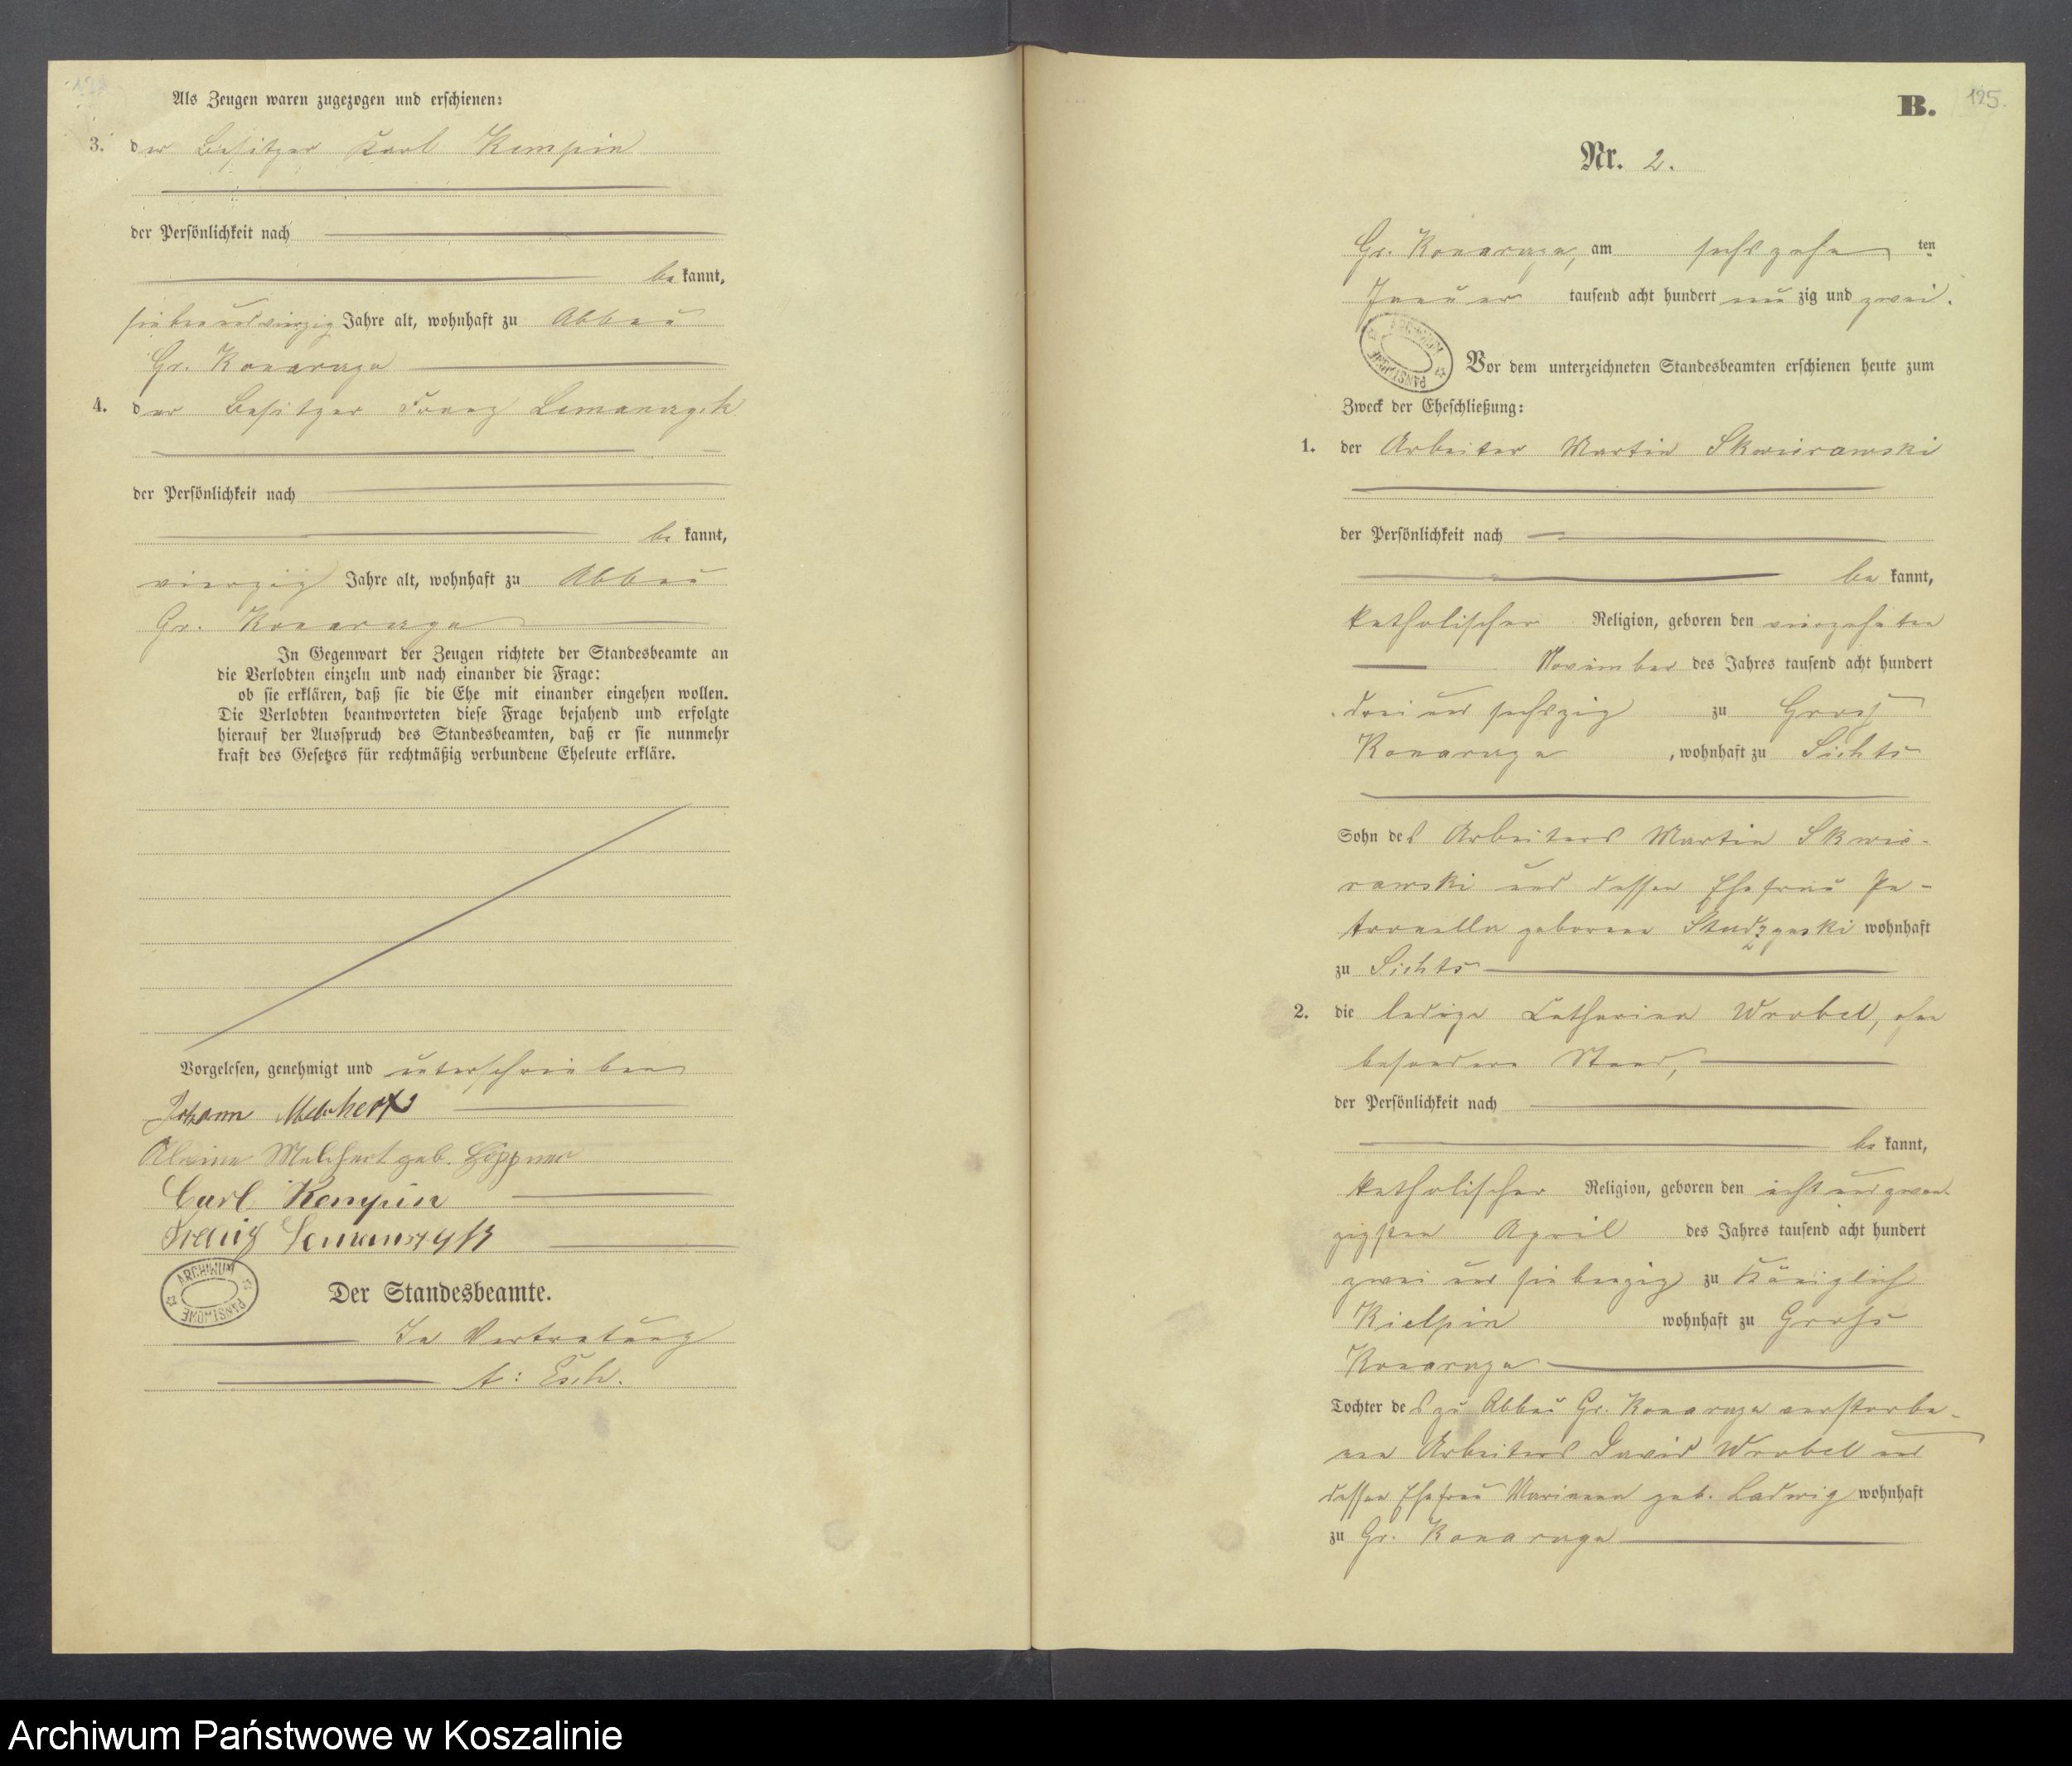 Als Zeugen waren zugezogen und erschienen:
3. der Besitzer Karl Kempin
der Persönlichkeit nach
be kannt,
siebenundvierzig Jahre alt, wohnhaft zu Abbau
Gr. Konarczyn
4. der Besitzer Franz Lemanczyk
der Persönlichkeit nach
be kannt,
vierzig Jahre alt, wohnhaft zu Abbau
Gr. Konarczyn
In Gegenwart der Zeugen richtete der Standesbeamte an
die Verlobten einzeln und nach einander die Frage:
ob sie erklären, daß sie die Ehe mit einander eingehen wollen.
Die Verlobten beantworteten diese Frage bejahend und erfolgte
hierauf der Ausspruch des Standesbeamten, daß er sie nunmehr
kraft des Gesetzes für rechtmäßig verbundene Eheleute erkläre.
Vorgelesen, genehmigt und unterschrieben
Johann Melchert
Melchert geb. Höppner
Carl Kempin
Franz Lemanczyk
ARCHIWUM PAŃSTWOWE
Der Standesbeamte.
In Vertretung
Esch.
B. 125.
Nr. 2.
Gr. Konarczyn, am sechszehn ten
Januar tausend acht hundert neun zig und zwei.
ARCHIWUM PAŃSTWOWE
Vor dem unterzeichneten Standesbeamten erschienen heute zum
Zweck der Eheschließung:
1. der Arbeiter Martin Skwierawski
der Persönlichkeit nach
be kannt,
katholischer Religion, geboren den vierzehnten
November des Jahres tausend acht hundert
drei und sechszig zu Groß
Konarczyn, wohnhaft zu Sichts
Sohn des Arbeiters Martin Skwie-
rawski und dessen Ehefrau Pe-
tronella geborene Studzynski wohnhaft
zu Sichts
2. die ledige Catharina Wrobel, ohne
besondern Stand,
der Persönlichkeit nach
be kannt,
katholischer Religion, geboren den acht und zwan
zigsten April des Jahres tausend acht hundert
zwei und siebenzig zu Königlich
Kielpin wohnhaft zu Groß
Konarczyn
Tochter des zu Abbau Gr. Konarczyn verstorbe-
nen Arbeiters David Wrobel und
dessen Ehefrau Marianna geb. Ladwig wohnhaft
zu Gr. Konarczyn
Archiwum Państwowe w Koszalinie